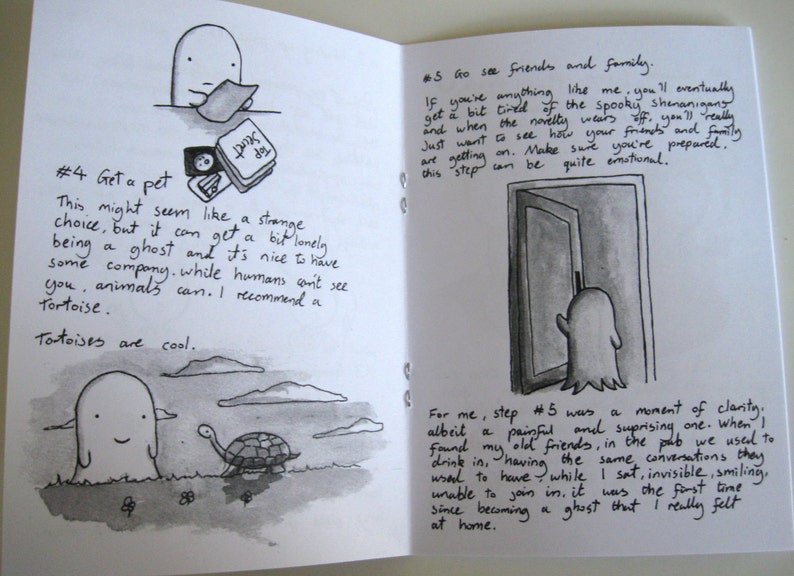 Top
Secret
#4 Get a pet
This might seem like a strange
choice, but it can get a bit lonely
being a ghost and it's nice to have
some company. While humans can't see
you, animals can. I recommend a
Tortoise.
Tortoises are cool.
#5 Go see friends and family.
If you're anything like me, you'll eventually
get a bit tired of the spooky shenanigans
and when the novelty wears off, you'll really
Just want to see how your friends and family
are getting on. Make sure you're prepared,
this step can be quite emotional.
For me, step #5 was a moment of clarity,
albeit a painful and suprising one. When I
found my old friends, in the pub we used to
drink in, having the same conversations they
used to have, while I sat, invisible, smiling,
unable to join in. it was the first time
since becoming a ghost that I really felt
at home.